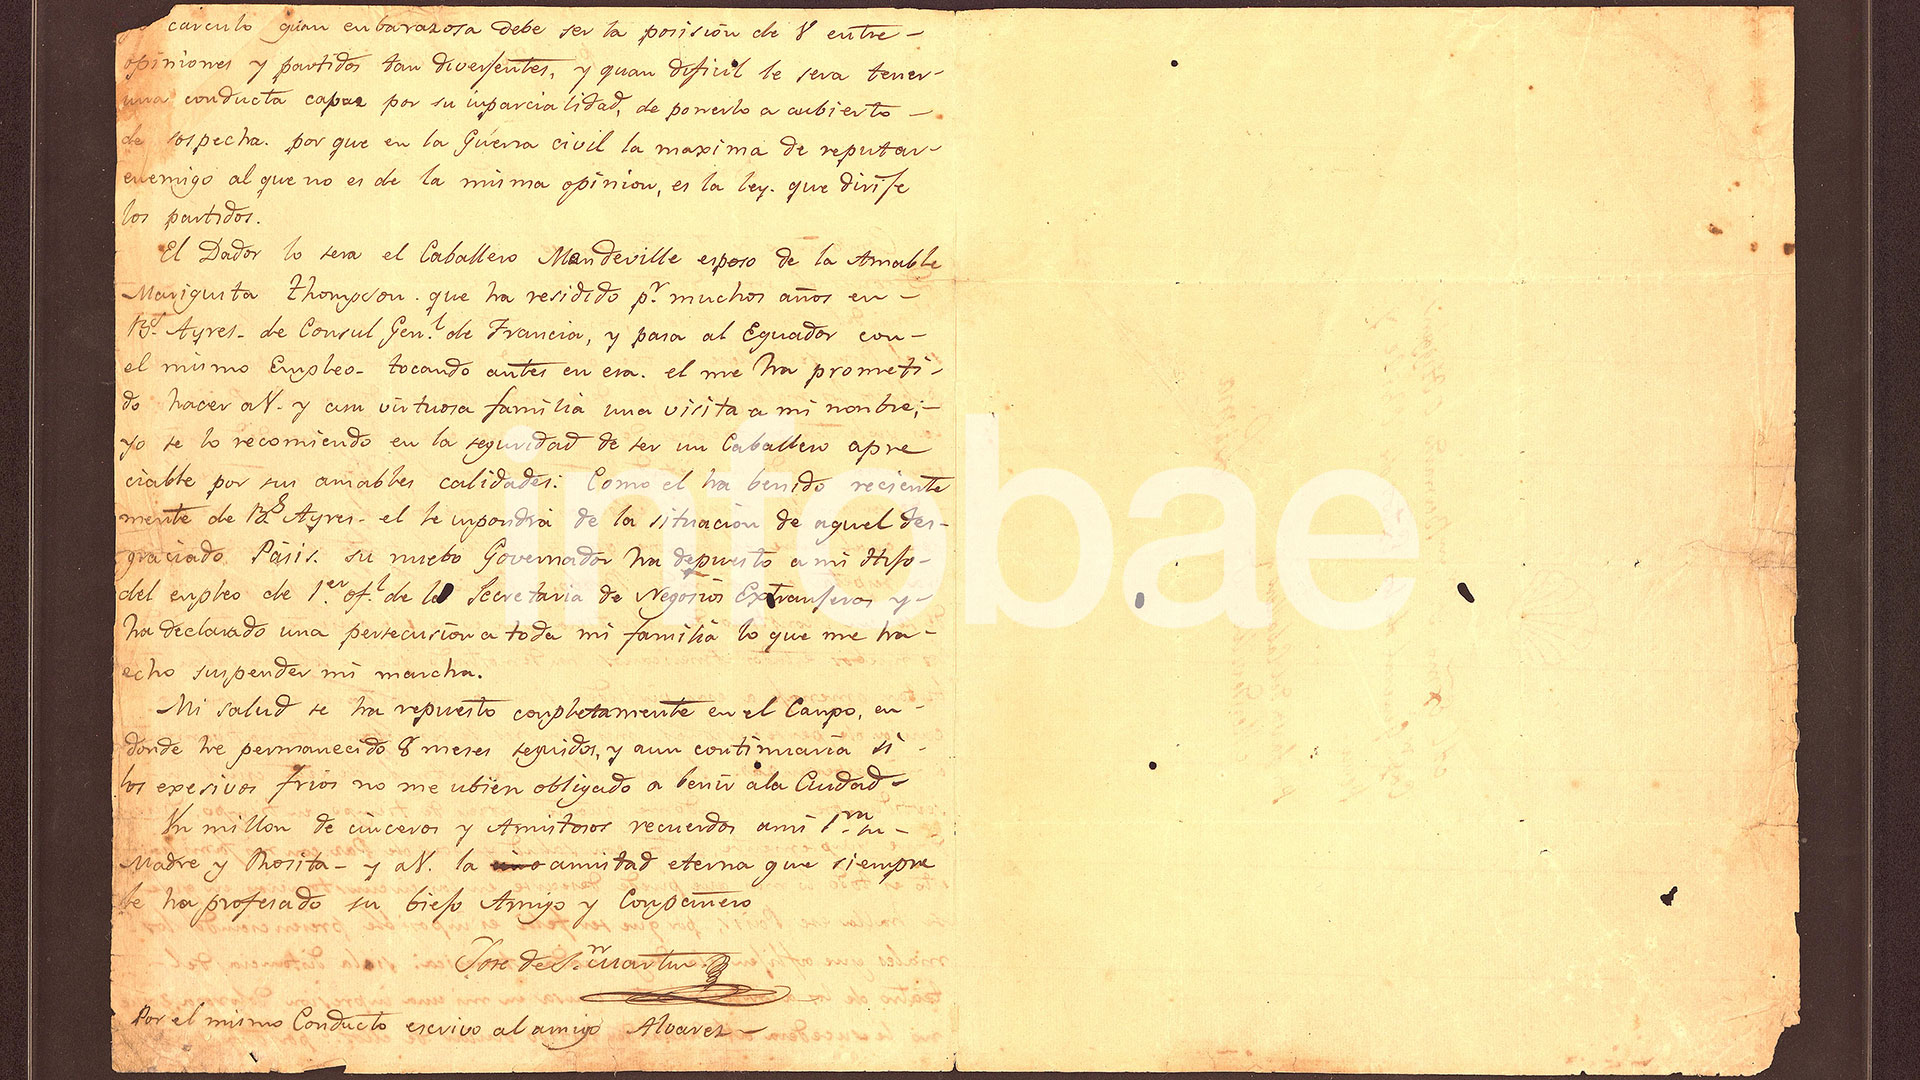 yo carculo quan enbarazosa debe ser la posision de V entre –
opiniones y partidos tan diverjentes, y quan dificil le sera tener –
una conducta capaz por su inparcialidad, de ponerlo a cubierto –
de sospecha. por que en la Guerra civil la maxima de reputar –
enemigo al que no es de la misma opinion, es la ley. que dirije
los partidos.
El Dador lo sera el Caballero Mandeville esposo de la Amable
Mariquita Thompson. que ha residido pr. muchos años en –
Bs. Ayres. de Consul Genl. de Francia, y pasa al Equador con –
el mismo Empleo – tocando antes en esa. el me ha prometi –
do hacer a V. y a su virtuosa familia una visita a mi nonbre; –
yo se lo recomiendo en la seguridad de ser un Caballero apre
ciable por sus amables calidades: Como el ha benido reciente
mente de Bs. Ayres – el le inpondrá de la situacion de aquel des –
graciado Païs. su nuebo Governador ha depuesto a mi Hijo –
del enpleo de 1er. ofl. de la Secretaria de Negosios Extranjeros y –
ha declarado una persecusion a toda mi familia lo que me ha –
echo suspender mi marcha.
Mi salud se ha repuesto conpletamente en el Canpo, en –
donde he permanecido 8 meses seguidos, y aun continuaria si –
los exesivos frios no me ubien obligado a benir a la Ciudad –
Un millon de cinceros y Amistosos recuerdos a mi Sra. su –
Madre y Rosita – y a V. la amistad eterna que siempre
le ha profesado su biejo Amigo y Conpañero
Jose de Sn. Martin
Por el mismo Conducto escrivo al amigo Alvarez –
infobae